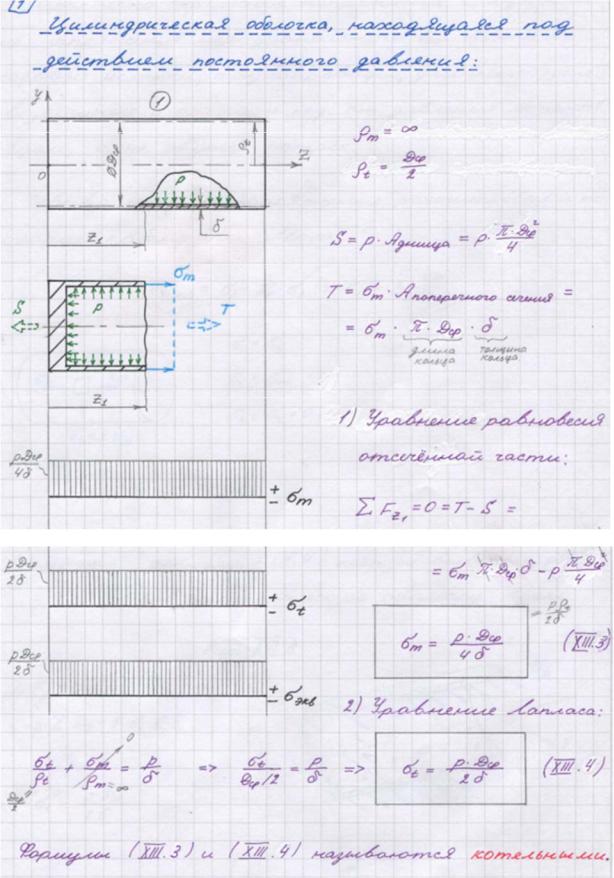 1
Цилиндрическая оболочка, находящаяся под
действием постоянного давления:
y
1
ρm = ∞
ρt = Dср/2
⌀Dср
ρt
Z
0
p
δ
z₁
S = p · Aднища = p · π · Dср²/4
σm
T = σm · Aпоперечного сечения =
S
p
T
= σm · π · Dср · δ
длина кольца
толщина кольца
z₁
1) Уравнение равновесия
отсечённой части:
pDср/4δ
+
− σm
Σ Fz₁ = 0 = T − S =
pDср/2δ
= σm π · Dср · δ − p π Dср²/4
+
− σt
= pρt/2δ
σm = p · Dср/4δ (XIII.3)
pDср/2δ
+
− σэкв
2) Уравнение Лапласа:
σt/ρt + σm/ρm=∞ = p/δ => σt/Dср/2 = p/δ => σt = p · Dср/2δ (XIII.4)
0
Dср/2 =
Формулы (XIII.3) и (XIII.4) называются котельными.